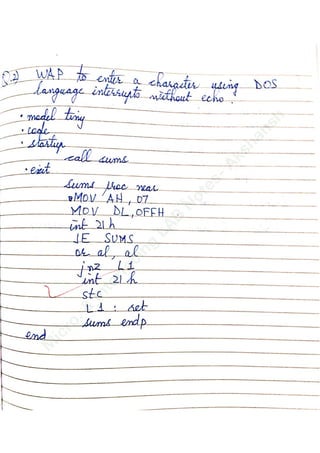 Q.2) WAP to enter a character using DOS
language interrupts without echo.
.model tiny
.code
.startup
call sums
.exit
sums proc near
MOV AH, 07
MOV DL, 0FFH
int 21 h
JE SUMS
or al, al
jnz L1
int 21 h
stc
L1 : ret
sums endp
end